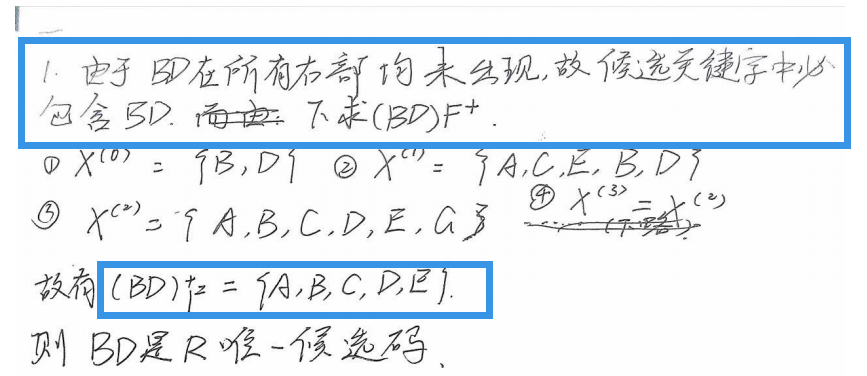 1. 由于BD在所有右部均未出现,故候选关键字中必
包含BD. 下求(BD)F⁺.
① X⁽⁰⁾ = {B,D} ② X⁽¹⁾ = {A,C,E,B,D}
③ X⁽²⁾ = {A,B,C,D,E,G} ④ X⁽³⁾ = X⁽²⁾
故有 (BD)⁺F = {A,B,C,D,E}.
则 BD是R唯一候选码.